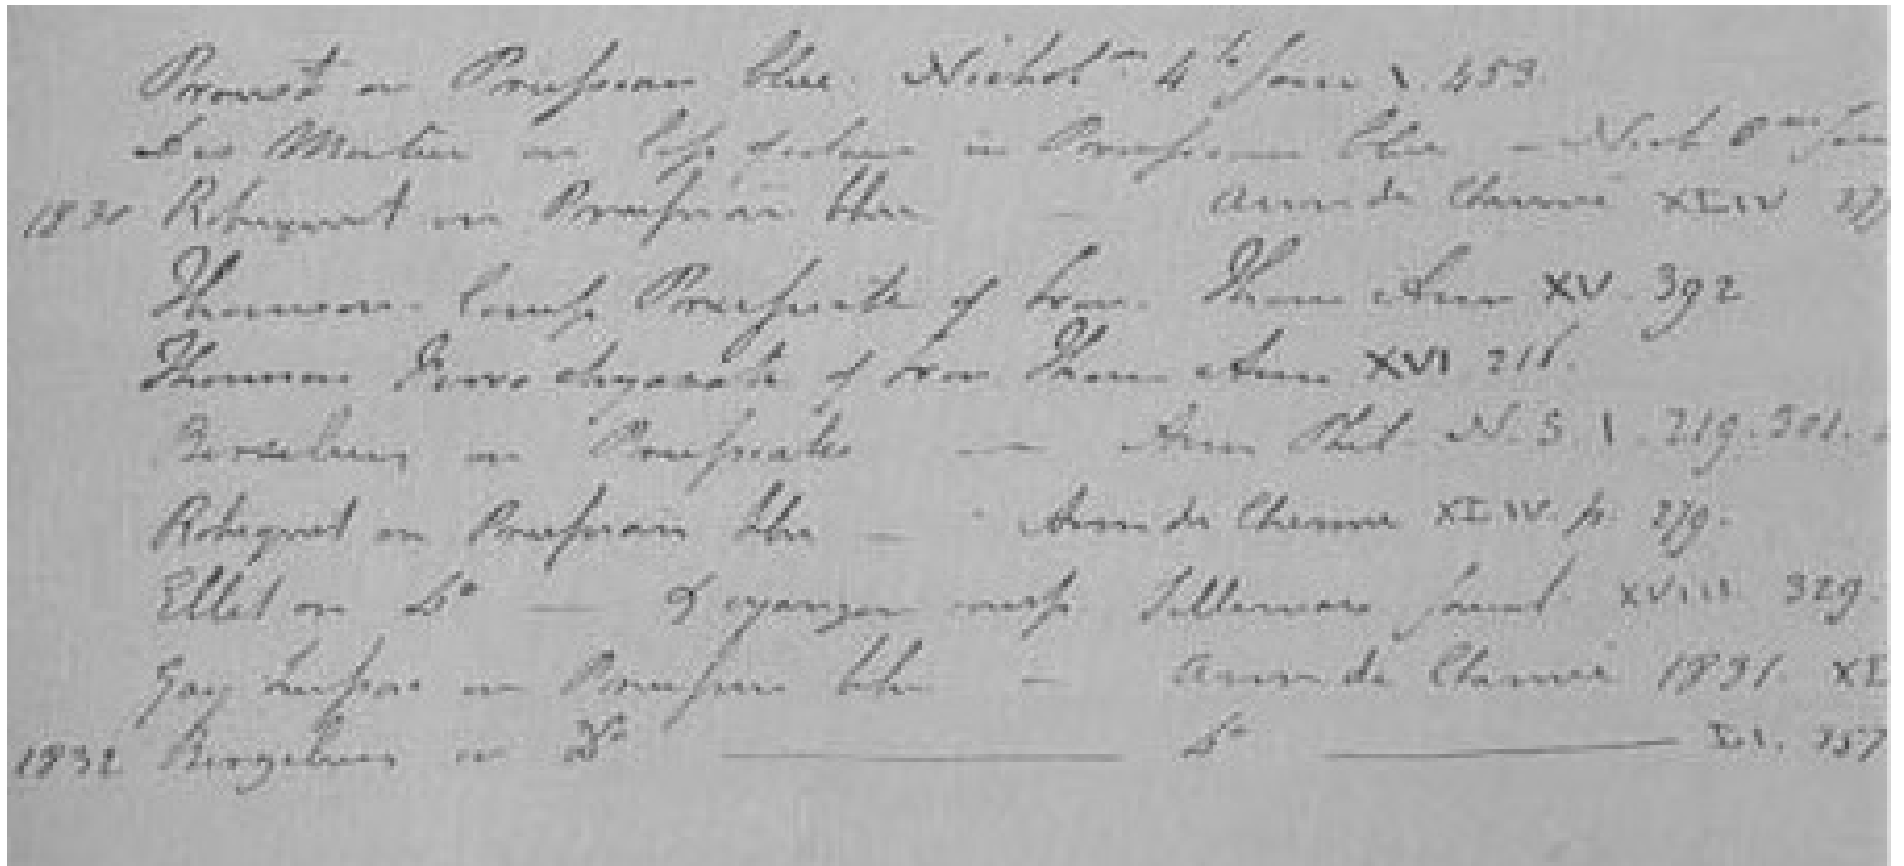 Proust on Prussian blue. Nichol^n 4^to Jour 1. 459.
Des Mortier on loss of colour in Prussian blue — Nich 8^vo Jou
1831 Robiquet on Prussian blue — Ann de Chemie XLIV 279
Thomson. Comp Prussiate of Iron. Thom Ann XV. 392
Thomson Ferro chyazate of Iron Thom Ann XVI 218.
Berzelius on Prussiates — Ann Phil. N.S. 1. 219. 301.
Robiquet on Prussian blue — Ann de Chemie XLIV. p. 279.
Ellet on D^o — & cyanogen comp. Sillimans Journal XVIII. 329.
Gay Lussac on Prussian blue — Ann de Chemie 1831. XL
1832 Berzelius on D^o — D^o — LI. 357